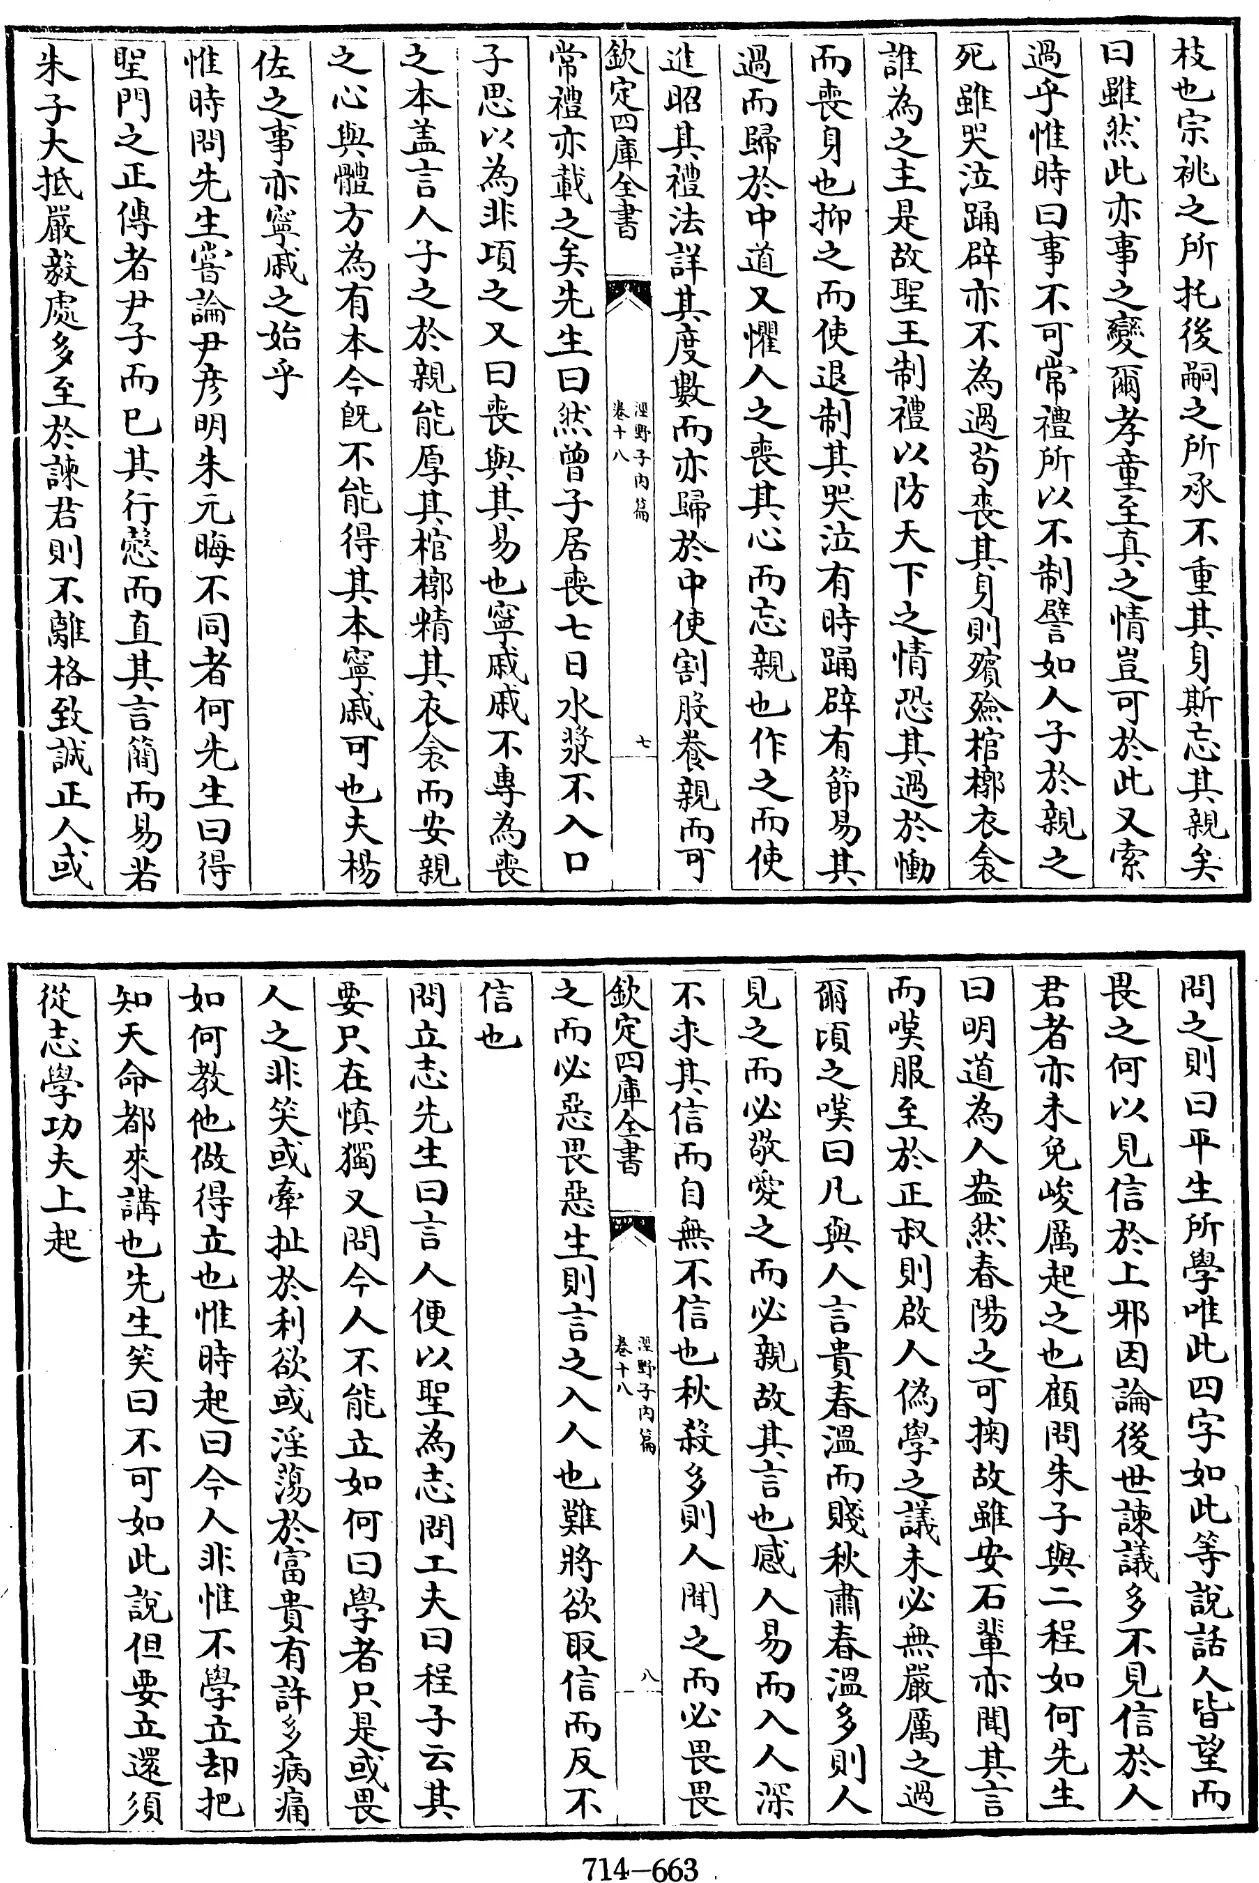 枝也宗祧之所托後嗣之所承不重其身斯忘其親矣
曰雖然此亦事之變爾孝童至真之情豈可於此又索
過乎惟時曰事不可常禮所以不制譬如人子於親之
死雖哭泣踊辟亦不為過苟喪其身則殯殮棺槨衣衾
誰為之主是故聖王制禮以防天下之情恐其過於慟
而喪身也抑之而使退制其哭泣有時踊辟有節易其
過而歸於中道又懼人之喪其心而忘親也作之而使
進昭其禮法詳其度數而亦歸於中使割股養親而可
欽定四庫全書
涇野子內篇
卷十八
七
常禮亦載之矣先生曰然曾子居喪七日水漿不入口
子思以為非項之又曰喪與其易也寧戚戚不專為喪
之本盖言人子之於親能厚其棺槨精其衣衾而安親
之心與體方為有本今旣不能得其本寧戚可也夫楊
佐之事亦寧戚之始乎
惟時問先生嘗論尹彥明朱元晦不同者何先生曰得
聖門之正傳者尹子而已其行慤而直其言簡而易若
朱子大抵嚴毅處多至於諫君則不離格致誠正人或
問之則曰平生所學唯此四字如此等說話人皆望而
畏之何以見信於上邪因論後世諫議多不見信於人
君者亦未免峻厲起之也顧問朱子與二程如何先生
曰明道為人盎然春陽之可掬故雖安石輩亦聞其言
而嘆服至於正叔則啟人偽學之議未必無嚴厲之過
爾頃之嘆曰凡與人言貴春溫而賤秋肅春溫多則人
見之而必敬愛之而必親故其言也感人易而入人深
不求其信而自無不信也秋殺多則人聞之而必畏畏
欽定四庫全書
涇野子內篇
卷十八
八
之而必惡畏惡生則言之入人也難將欲取信而反不
信也
問立志先生曰言人便以聖為志問工夫曰程子云其
要只在慎獨又問今人不能立如何曰學者只是或畏
人之非笑或牽扯於利欲或淫蕩於富貴有許多病痛
如何教他做得立也惟時起曰今人非惟不學立却把
知天命都來講也先生笑曰不可如此說但要立還須
從志學功夫上起
714-663